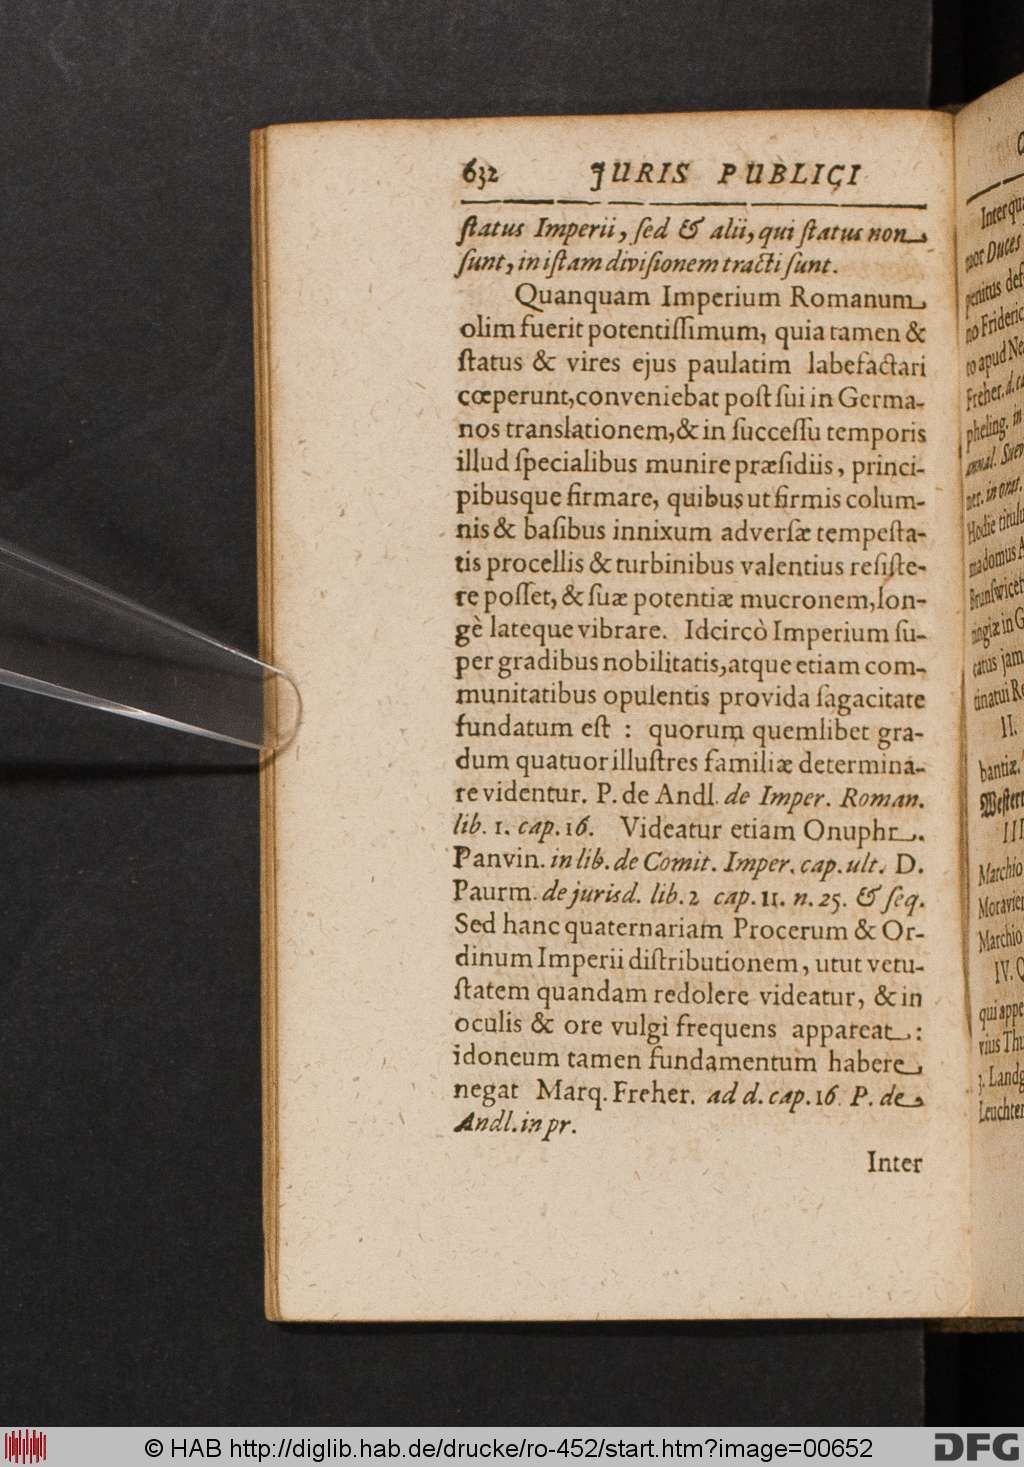 632 JURIS PUBLICI
ſtatus Imperii, ſed & alii, qui ſtatus non
ſunt, in iſtam diviſionem tracti ſunt.
Quanquam Imperium Romanum
olim fuerit potentiſſimum, quia tamen &
ſtatus & vires ejus paulatim labefactari
cœperunt, conveniebat poſt ſui in Germa-
nos translationem, & in ſucceſſu temporis
illud ſpecialibus munire præſidiis, princi-
pibusque firmare, quibus ut firmis colum-
nis & baſibus innixum adverſæ tempeſta-
tis procellis & turbinibus valentius reſiſte-
re poſſet, & ſuæ potentiæ mucronem, lon-
gè lateque vibrare. Idcircò Imperium ſu-
per gradibus nobilitatis, atque etiam com-
munitatibus opulentis provida ſagacitate
fundatum eſt : quorum quemlibet gra-
dum quatuor illuſtres familiæ determina-
re videntur. P. de Andl. de Imper. Roman.
lib. 1. cap. 16. Videatur etiam Onuphr.
Panvin. in lib. de Comit. Imper. cap. ult. D.
Paurm. de jurisd. lib. 2 cap. 11. n. 25. & ſeq.
Sed hanc quaternariam Procerum & Or-
dinum Imperii diſtributionem, utut vetu-
ſtatem quandam redolere videatur, & in
oculis & ore vulgi frequens appareat :
idoneum tamen fundamentum habere
negat Marq. Freher. ad d. cap. 16. P. de
Andl. in pr.
Inter
Inter
Duces
penitus
no
to apud
Freher. d.
pheling. in
annal.
Hodie
ma domus
ringiæ in
catus jam
tinatui
II.
bantiæ.
III
Marchio
Marchio
IV.
qui
vius
3. Landg
© HAB http://diglib.hab.de/drucke/ro-452/start.htm?image=00652
DFG